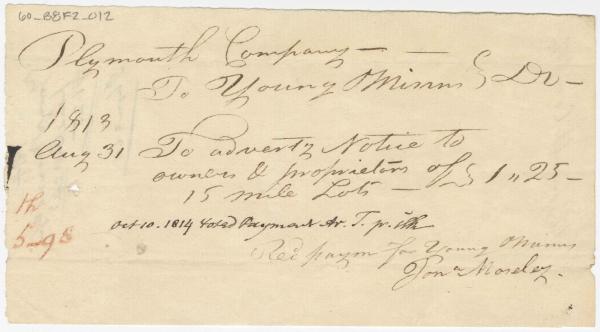 60-88F2-012
Plymouth Company —
To Young & Minns } Dr —
1813
Aug 31 To advertg Notice to
owners & proprietors of } 1,,25 —
15 mile Lots —
Oct 10. 1814 Voted Payment
Recd paym for Young & Minns
Jona Moseley.
th
5-98